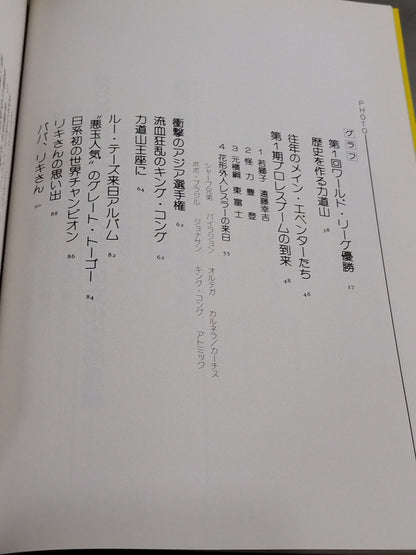 PHOTO
グラフ
第1回ワールド・リーグ優勝 37
歴史を作る力道山 38
往年のメイン・エベンターたち 46
第1期プロレスブームの到来 48
1 若獅子 遠藤幸吉
2 怪力 豊登
3 元横綱 東富士
4 花形外人レスラーの来日 55
シャープ兄弟 バイラジョン オルテガ カルネラ/カーチス
ボボ・ブラジル ジョナサン キング・コング アトミック
衝撃のアジア選手権 62
流血狂乱のキング・コング 62
力道山王座に 64
ルー・テーズ来日アルバム 82
"悪玉人気"のグレート・トーゴー 84
日系初の世界チャンピオン 86
リキさんの思い出 88
パパ、リキさん 90